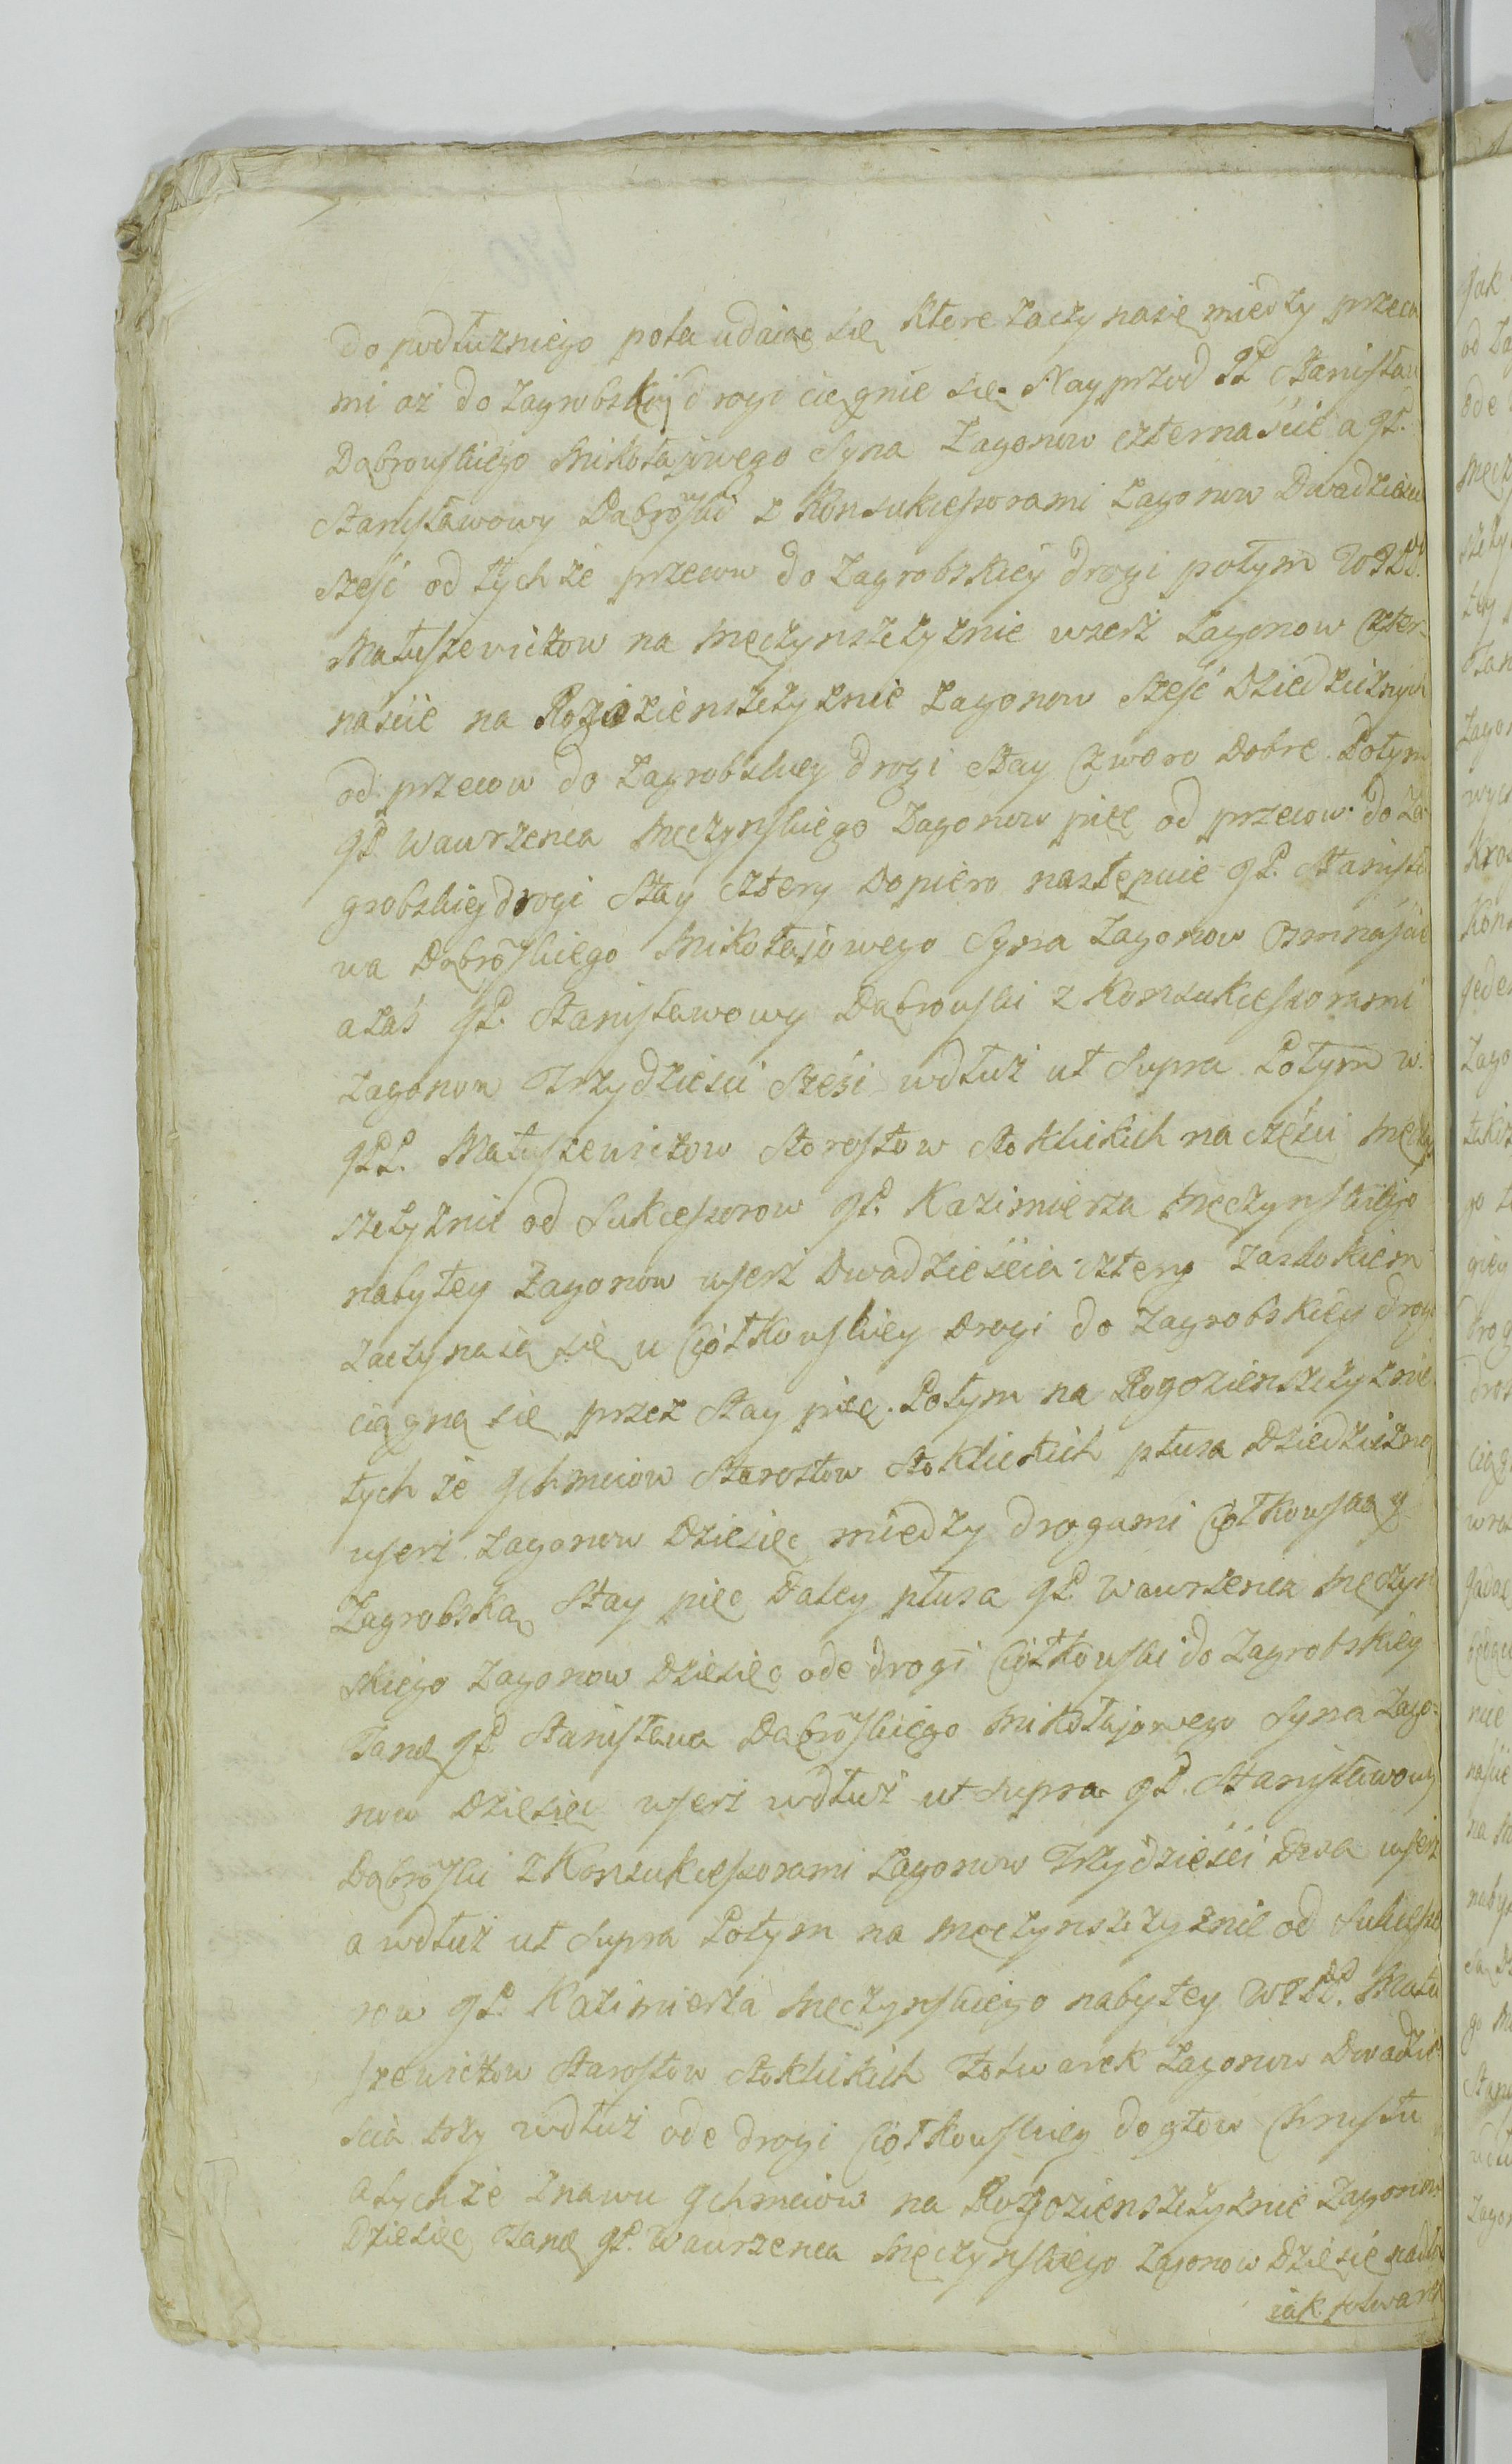 do podłuzniego pola udaiąc się ktere zaczynasię między przeco
mi aż do Zagrobskiej drogi ciegnie się. Nayprzod JP Stanisław
Dąbrowskiego Mikołajowego Syna Zagonow czternaście a JP.
Stanisławowy Dąbrõski z Konsukcessorami Zagonow Dwadzieście
sześć od tychże przecow do Zagrobskiey drogi potym WJPP.
Matuszewiczow na Męczynszczyznie wszerż Zagonow Czter-
naście na Rogozienszczyznie Zagonow Sześć Dziedzicznych
od przecow do Zagrobskiey drogi Stay Czworo Dobre. Potym
JP. Wawrzenca Męczynskiego Zagonow pięc od przecow do Za
grobskiey drogi Stay cztery Dopiero następuie JP. Stanisła
wa Dąbrõskiego Mikołajowego Syna Zagonow Osmnaście
azaś JP. Stanisławowy Dąbrowski z Konsukcessorami
Zagonow Trzydzieści Sześć wdłuż ut Supra Potym w.
JPP. Matuszewiczow Starostow Stoklickich na części Męczyn
szczyznie od Sukcessorow JP. Kazimierza Męczynskiego
nabytey Zagonow wszerż Dwadzieścia cztery Zasdokiem
zaczynaia się u Ciołkowskiey drogi do Zagrobskiey drogi
ciągną się przez Stay pięc. Potym na Rogozienszczyznie
tych że Jchmciow Starostow Stoklickich płusa Dziedziczna
wszerż Zagonow Dziesięc między drogami Ciołkowską y
Zagrobską Stay pięc Daley płusa JP. Wawrzenca Męczyn
skiego Zagonow Dziesięc ode drogi Ciołkowski do Zagrobskiey
Tanę JP. Stanisława Dąbrõskiego Mikołajowego Syna Zago=
now Dziesięc wszerż wdłuż ut supra JP. Stanisławowy
Dąbrõski z Konsukcessorami Zagonow Trzydzieści Dwa wszerż
a wdłuż ut Supra Potym na Męczynszczyznie od Sukcesso
row JP. Kazimierza Męczynskiego nabytey WJPP. Matu
szewiczow Starostow Stoklickich Folwarek Zagonow Dwadzie
scia trzy wdłuż ode drogi Ciołkowskiey do głow Chrustu
a tychże znawu Jchmciow na Rogozienszczyznie Zagonow
Dziesięc Tanę JP. Wawrzenca Męczynskiego Zagonow Dziesię
iak folwark